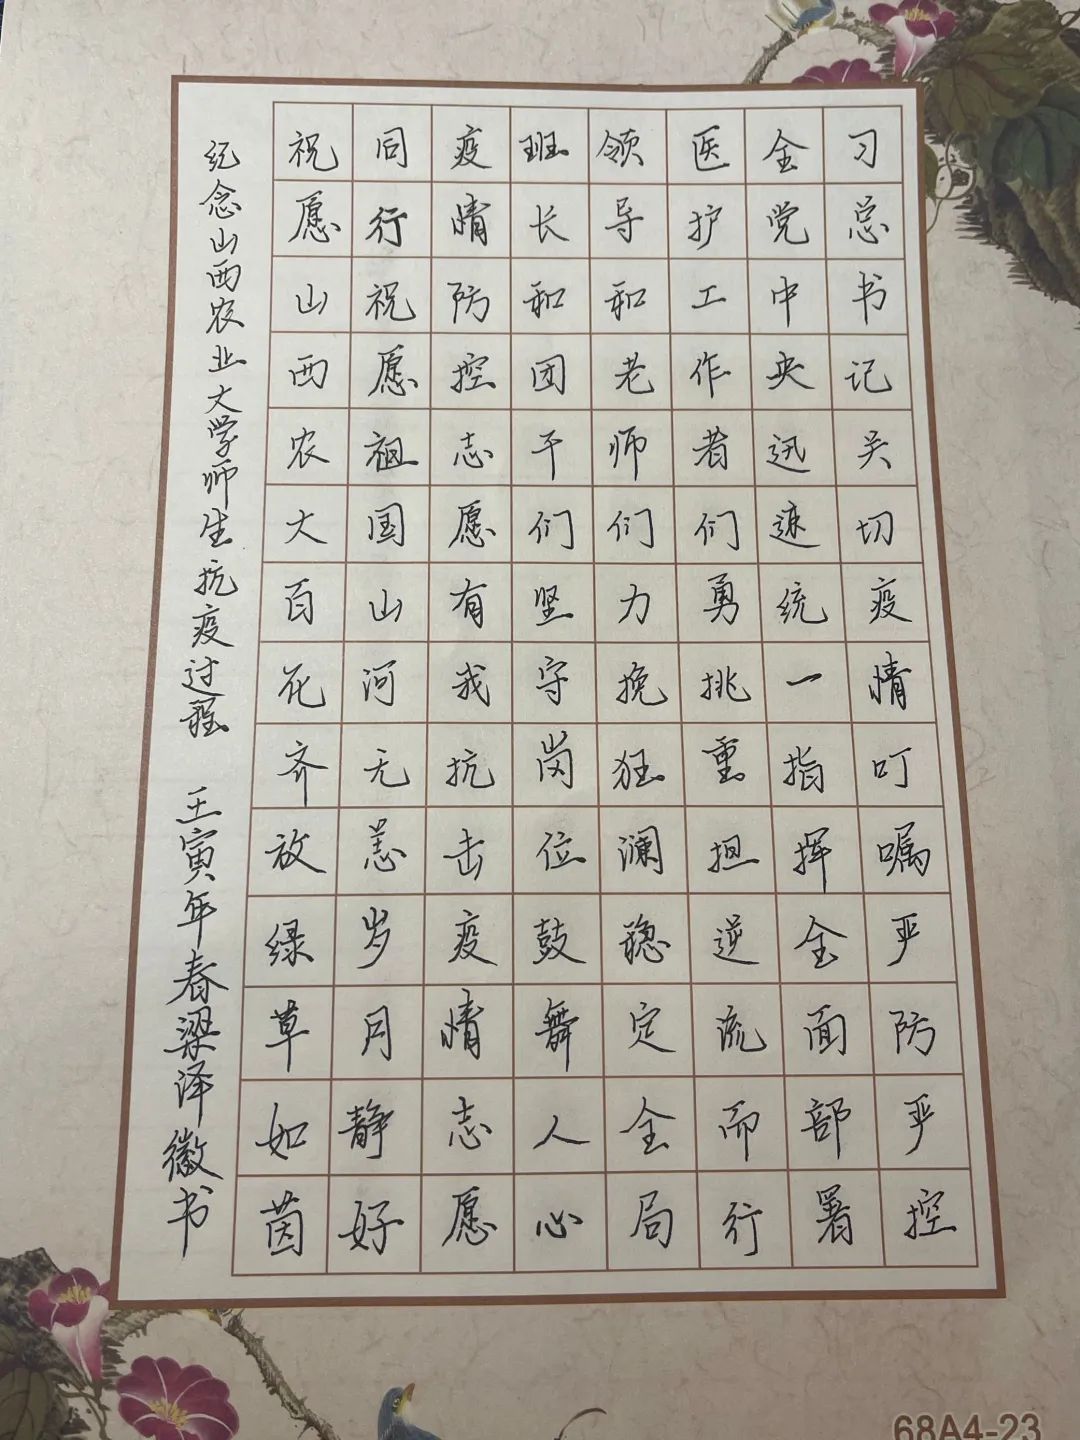 习总书记关切疫情叮嘱严防严控
全党中央迅速统一指挥全面部署
医护工作者们勇挑重担逆流而行
领导和老师们力挽狂澜稳定全局
班长和团干们坚守岗位鼓舞人心
疫情防控志愿有我抗击疫情志愿
同行祝愿祖国山河无恙岁月静好
祝愿山西农大百花齐放绿草如茵
纪念山西农业大学师生抗疫过程 壬寅年春梁泽徽书
68A4-23